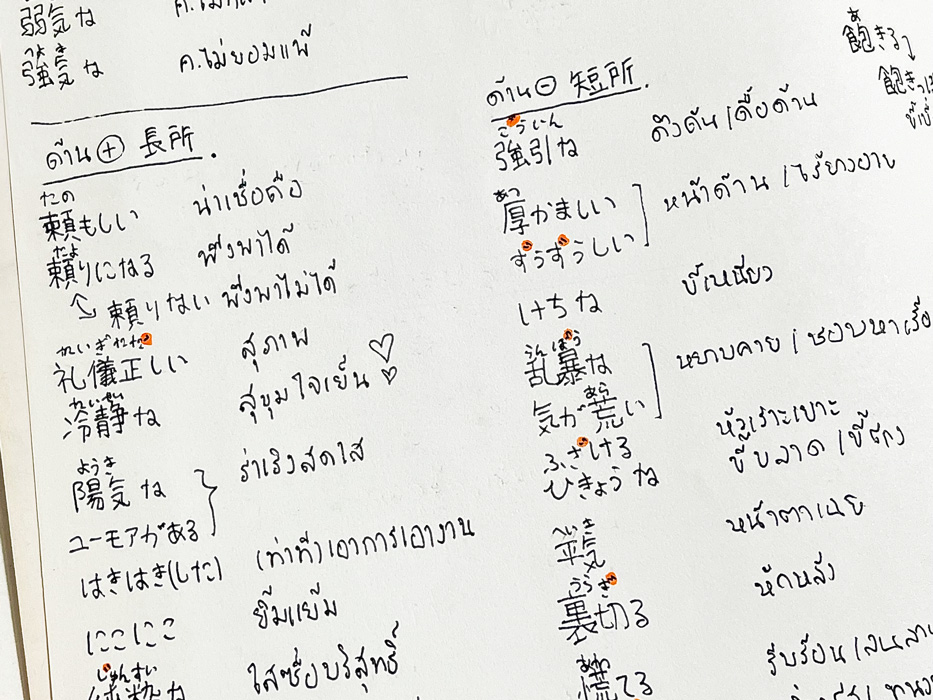 弱気な
つよき
強気な ค.ไม่ยอมแพ้
ด้าน⊕ 長所.
たの
頼もしい น่าเชื่อถือ
たよ
頼りになる พึ่งพาได้
頼りない พึ่งพาไม่ได้
れいぎただ
礼儀正しい สุภาพ
れいせい
冷静な สุขุมใจเย็น
ようき
陽気な ร่าเริงสดใส
ユーモアがある
はきはき(した) (ท่าที)เอาการเอางาน
にこにこ ยิ้มแย้ม
じゅんすい
純粋な ใสซื่อบริสุทธิ์
あ
飽きる
飽き
ด้าน⊖ 短所.
ごういん
強引な ดึงดัน/ดื้อด้าน
あつ
厚かましい หน้าด้าน/ไร้ยางอาย
ずうずうしい
けちな ขี้เหนียว
らんぼう
乱暴な หยาบคาย/ชอบหาเรื่อ
あら
気が荒い
ふざける หัวเราะเยาะ
ひきょうな ขี้ขลาด/ขี้โกง
へいき
平気 หน้าตาเฉย
うらぎ
裏切る หักหลัง
あわ
慌てる รีบร้อน/ลนลาน